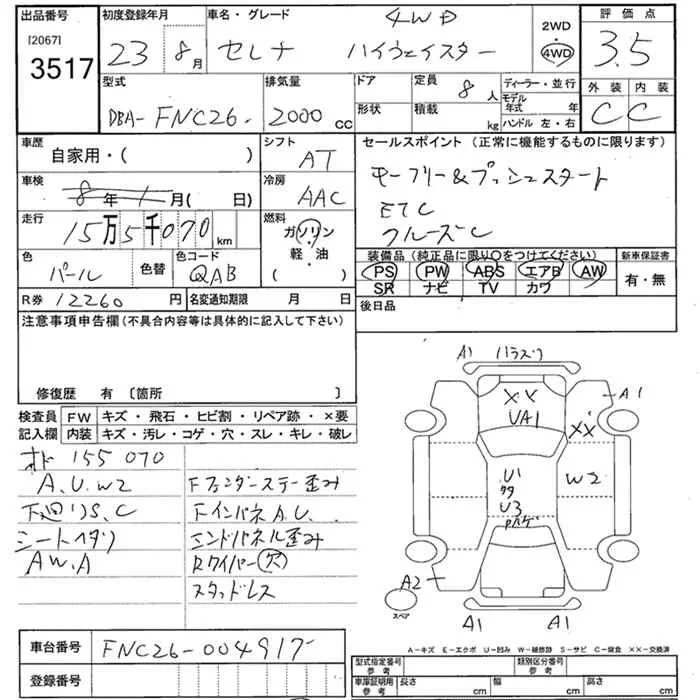 出品番号 初度登録年月 車名・グレード 4WD 2WD・4WD 評価点
[2067] 3517 23 8月 セレナ ハイウェイスター 3.5
型式 排気量 ドア 定員 8人 ディーラー・並行 外装 内装
DBA-FNC26. 2000cc 形状 積載 kg モデル年式 年 ハンドル 左・右 C C
車歴 シフト セールスポイント (正常に機能するものに限ります)
自家用・( ) AT
キーフリー&プッシュスタート
車検 8年1月( 日) 冷房 AAC
ETC
走行 15万5千070km 燃料 ガソリン・軽・油・( )
クルーズC
色 パール 色替 色コード QAB
装備品 (純正品に限り○をつけてください) 新車保証書
PS PW ABS エアB AW 有・無
SR ナビ TV カワ
R券 12260円 名変通知期限 月 日 後日品
注意事項申告欄(不具合内容等は具体的に記入して下さい)
修復歴 有 〔箇所 〕
検査員 FW キズ・飛石・ヒビ割・リペア跡・×要
記入欄 内装 キズ・汚レ・コゲ・穴・スレ・キレ・破レ
オド 155070
A.U.W2 Fフェンダーステー歪み
下廻りS.C Fインパネ A.U.
シートヘタリ エンドパネル歪み
AW.A Rワイパー穴
スタッドレス
A1
A1
XX
UA1
XX
U1
W2
U3
A2
スペア
A1 A1
A-キズ E-エクボ U-凹み W-補修跡 S-サビ C-腐食 ××-交換済
車台番号 FNC26-004917
登録番号
型式指定番号 参考 類別区分番号 参考
車庫証明用 参考 長さ cm 幅 cm 高さ cm